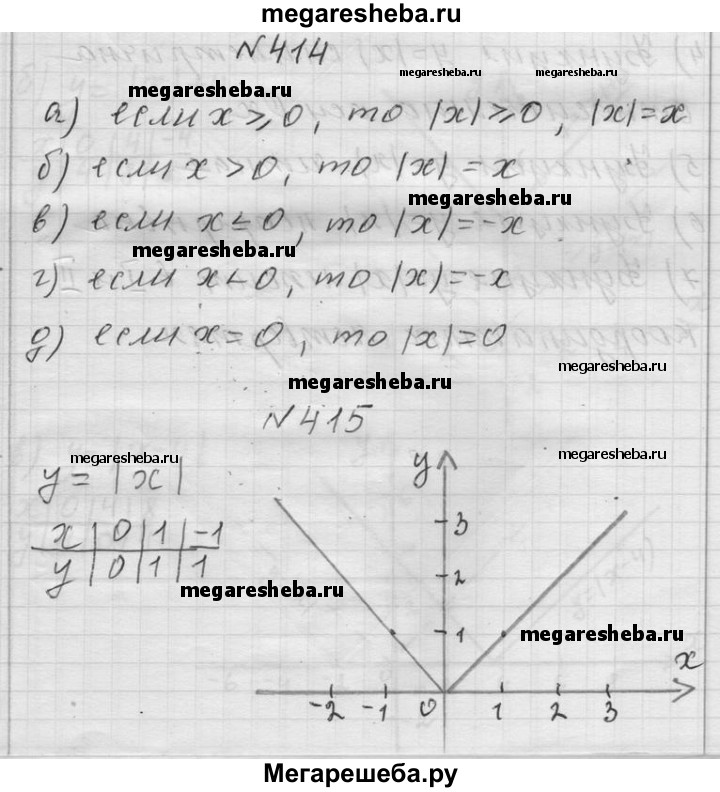 megaresheba.ru
№414
megaresheba.ru megaresheba.ru megaresheba.ru
а) если x ⩾ 0, то |x| ⩾ 0, |x| = x
б) если x > 0, то |x| = x
megaresheba.ru
в) если x ≤ 0, то |x| = -x
megaresheba.ru
г) если x < 0, то |x| = -x
д) если x = 0, то |x| = 0
megaresheba.ru
megaresheba.ru
№415
megaresheba.ru megaresheba.ru
y = |x|
x | 0 | 1 | -1
y | 0 | 1 | 1
megaresheba.ru
y
3
2
1
megaresheba.ru
x
-2 -1 0 1 2 3
Мегарешеба.ру